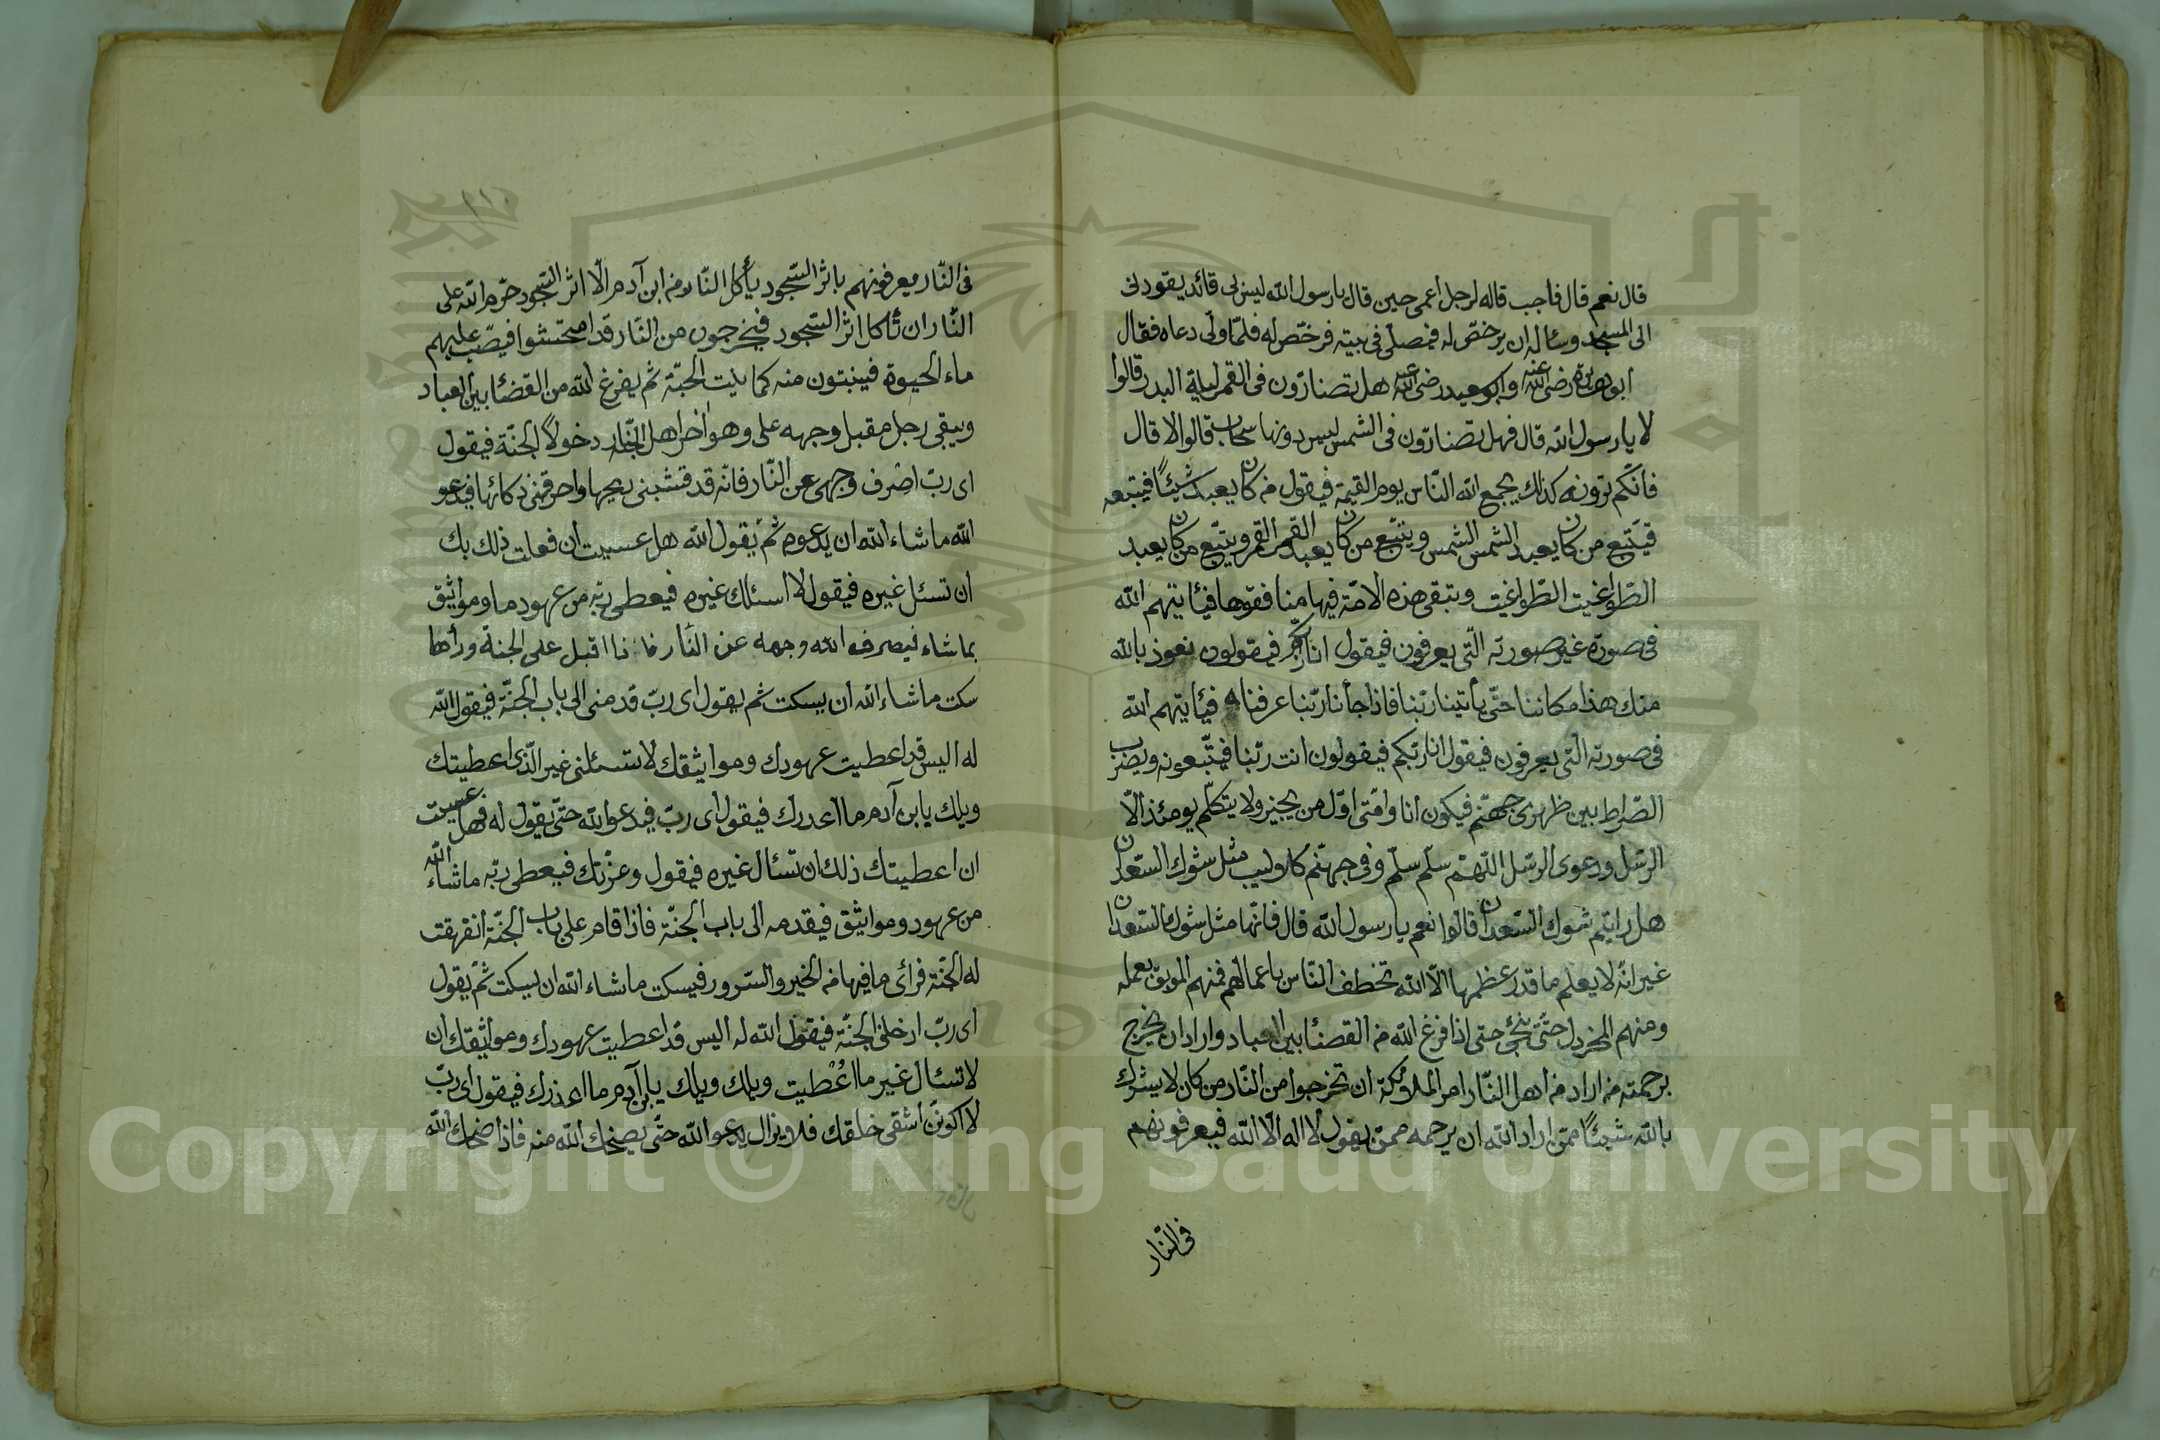 قال نعم قال فأجب قاله لرجل اعمى حين قال يا رسول الله ليس لى قائد يقودنى
الى المسجد وسأله ان يرخص له فيصلى فى بيته فرخص له فلمّا ولّى دعاه فقال
ابو هريرة رضى الله عنه وابو سعيد رضى الله عنه هل تضارّون فى القمر ليلة البدر قالوا
لا يا رسول الله قال فهل تضارّون فى الشمس ليس دونها سحاب قالوا لا قال
فانّكم ترونه كذلك يجمع الله النّاس يوم القيمة فيقول من كان يعبد شيئاً فيتبعه
فيتّبع من كان يعبد الشمس الشمس ويتّبع من كان يعبد القمر القمر ويتّبع من كان يعبد
الطّواغيت الطّواغيت وتبقى هذه الامّة فيها منافقوها فيأتيهم الله
فى صورة غير صورته الّتى يعرفون فيقول انا ربّكم فيقولون نعوذ بالله
منك هذا مكاننا حتّى يأتينا ربّنا فاذا جأنا ربّنا عرفناه فيأتيهم الله
فى صورته الّتى يعرفون فيقول انا ربّكم فيقولون انت ربّنا فيتّبعونه ويضرب
الصّراط بين ظهرى جهنّم فيكون انا وامّتى اوّل من يجيز ولا يتكلّم يومئذ الّا
الرّسل ودعوى الرسل اللّهمّ سلّم سلّم وفى جهنّم كلاليب مثل شوك السّعدان
هل رايتم شوك السّعدان قالوا نعم يا رسول الله قال فانّها مثل شوك السّعدان
غير انّه لا يعلم ما قدر عظمها الّا الله تخطف النّاس باعمالهم فمنهم الموبق بعمله
ومنهم المخردل حتّى ينجّى حتى اذا فرغ الله من القضأ بين العباد واراد ان يخرج
برحمته من اراد من اهل النّار امر الملائكة ان تخرجوا من النّار من كان لا يشرك
بالله شيئاً ممّن اراد الله ان يرحمه ممّن يقول لا اله الّا الله فيعرفونهم
فى النّار
١١٠
فى النّار يعرفونهم باثر السّجود يأكل النّار من ابن آدم الّا اثر السّجود حرّم الله على
النّار ان تأكل اثر السّجود فيخرجون من النّار قد امتحشوا فيصّب عليهم
ماء الحيوة فينبتون منه كما ينبت الحبّة ثم يفرغ الله من القضأ بين العباد
ويبقى رجل مقبل وجهه على وهو آخر اهل النّار دخولاً الجنّة فيقول
اى ربّ اصرف وجهى عن النّار فانّه قد قشبنى ريحها واحرقنى ذكائها فيدعو
الله ما شاء الله ان يدعوه ثمّ يقول الله هل عسيت ان فعلت ذلك بك
ان تسئل غيره فيقول لا اسئلك غيره فيعطى ربّه من عهود ما ومواثيق
بما شاء فيصرف الله وجهه عن النّار فاذا اقبل على الجنة ورأها
سكت ما شاء الله ان يسكت ثم يقول اى ربّ قدمنى الى باب الجنّة فيقول الله
له اليس قد اعطيت عهودك ومواثيقك لا تسئلنى غير الّذى اعطيتك
ويلك يا بن آدم ما اغدرك فيقول اى ربّ فيدعو الله حتّى يقول له فهل عسيت
ان اعطيتك ذلك ان تسأل غيره فيقول وعزّتك فيعطى ربّه ما شاء الله
من عهود ومواثيق فيقدمه الى باب الجنّة فاذا قام على باب الجنّة انفهقت
له الجنّة فرأى ما فيها من الخير والسّرور فيسكت ما شاء الله ان يسكت ثمّ يقول
اى ربّ ادخلنى الجنّة فيقول الله له اليس قد اعطيت عهودك ومواثيقك ان
لا تسأل غير ما اعطيت ويلك ويلك يا بن آدم ما اغدرك فيقول اى ربّ
لا اكوننّ اشقى خلقك فلا يزال يدعو الله حتّى يضحك الله منه فاذا ضحك الله
Copyright © King Saud University